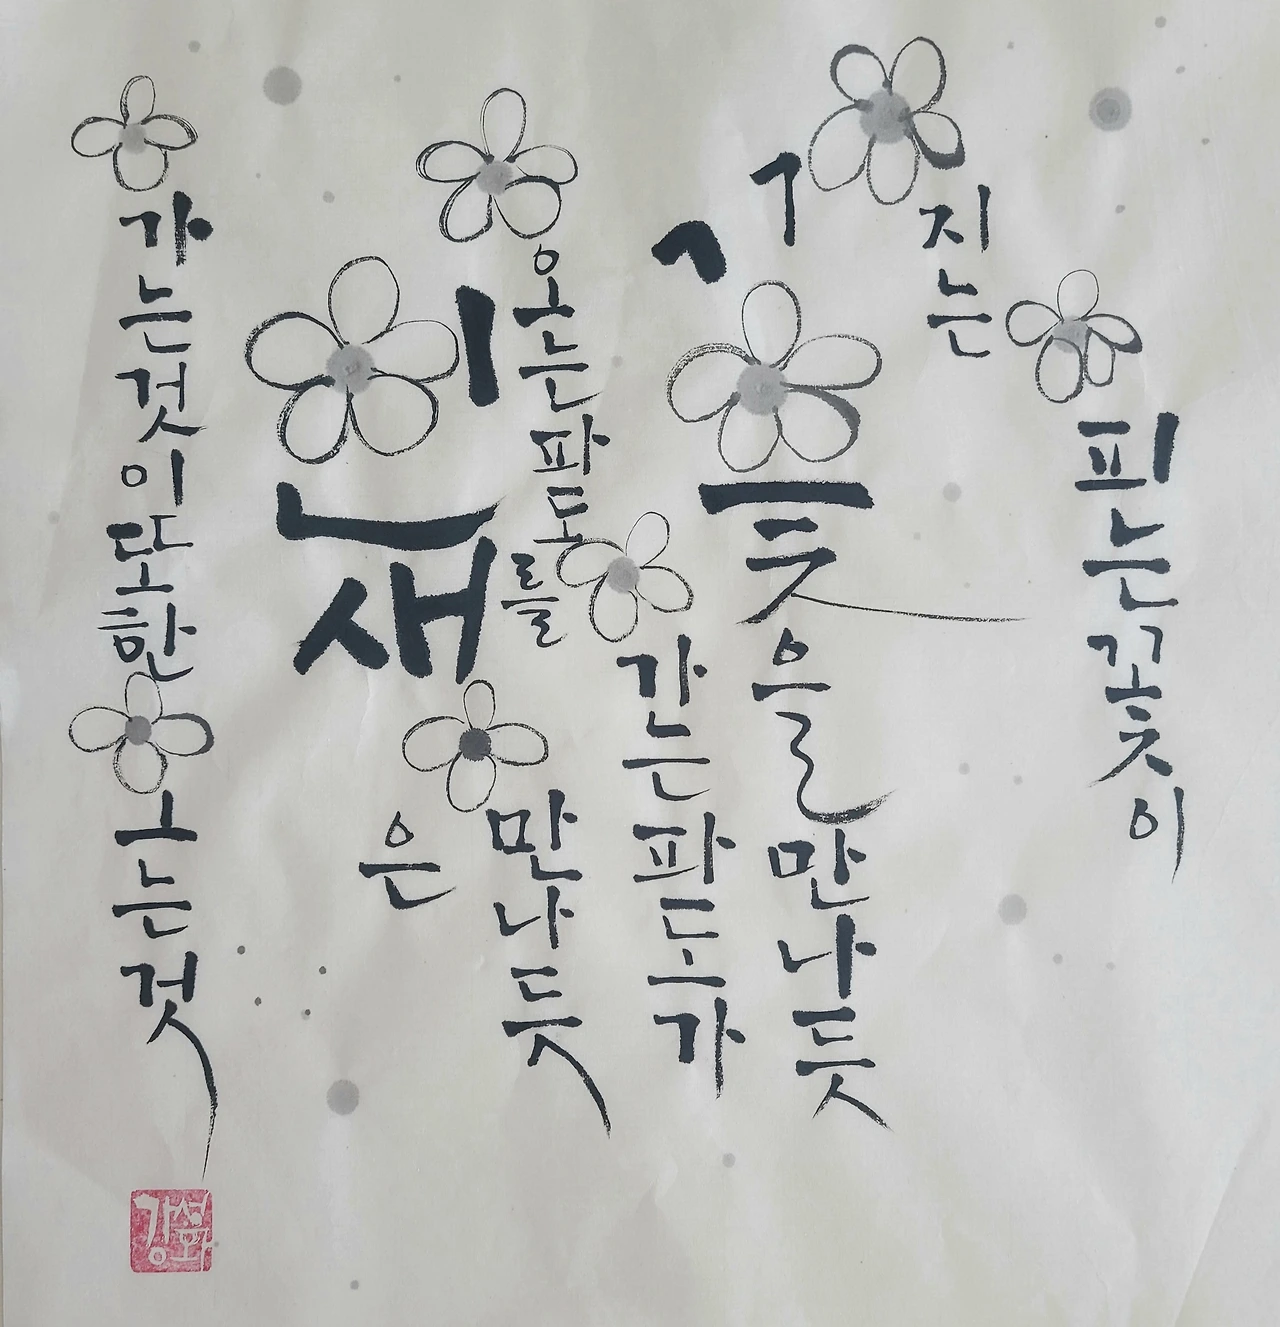 피는 꽃이
지는
꽃을 만나듯
가는 파도가
오는 파도를
만나듯
인생은
가는 것이 또한 오는 것